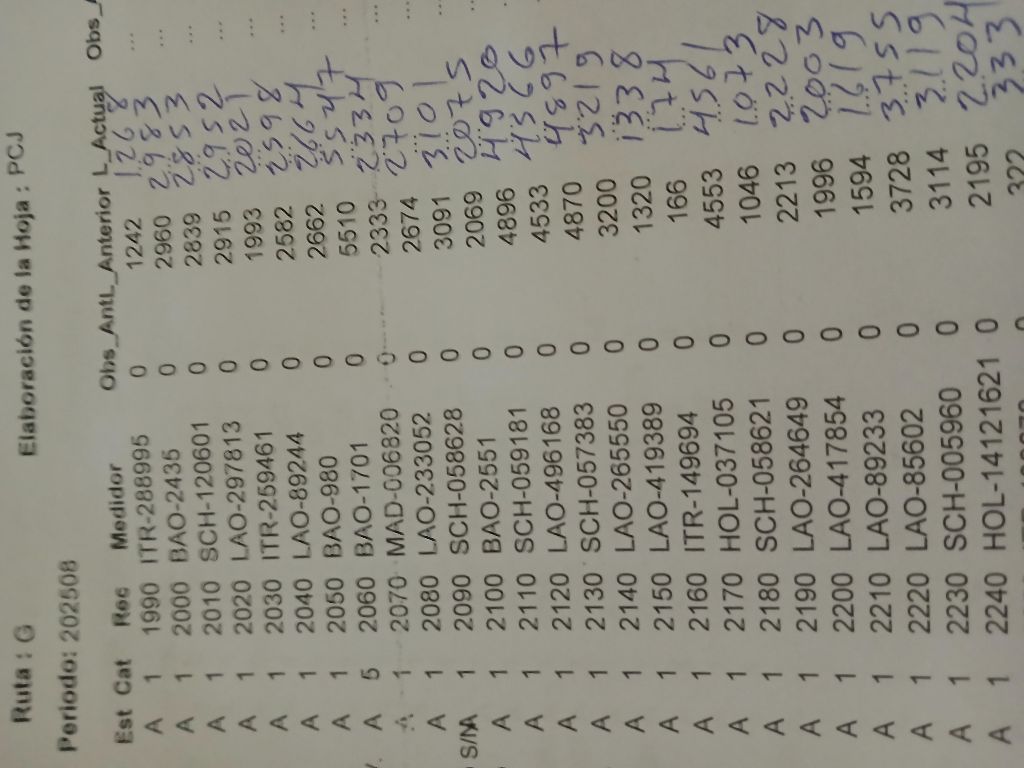 Ruta : G Elaboración de la Hoja : PCJ
Periodo: 202508
Est Cat Rec Medidor Obs_Ant L_Anterior L_Actual
A 1 1990 ITR-288995 0 1242 1268 ...
A 1 2000 BAO-2435 0 2960 2983 ...
A 1 2010 SCH-120601 0 2839 2853 ...
A 1 2020 LAO-297813 0 2915 2952 ...
A 1 2030 ITR-259461 0 1993 2021 ...
A 1 2040 LAO-89244 0 2582 2598 ...
A 1 2050 BAO-980 0 2662 2664 ...
A 5 2060 BAO-1701 0 5510 5547 ...
A 1 2070 MAD-006820 0 2333 2334 ...
A 1 2080 LAO-233052 0 2674 2709 ...
S/N A 1 2090 SCH-058628 0 3091 3101
A 1 2100 BAO-2551 0 2069 2075
A 1 2110 SCH-059181 0 4896 4920
A 1 2120 LAO-496168 0 4533 4566
A 1 2130 SCH-057383 0 4870 4897
A 1 2140 LAO-265550 0 3200 3219
A 1 2150 LAO-419389 0 1320 1338
A 1 2160 ITR-149694 0 166 174
A 1 2170 HOL-037105 0 4553 4561
A 1 2180 SCH-058621 0 1046 1073
A 1 2190 LAO-264649 0 2213 2228
A 1 2200 LAO-417854 0 1996 2003
A 1 2210 LAO-89233 0 1594 1619
A 1 2220 LAO-85602 0 3728 3755
A 1 2230 SCH-005960 0 3114 3119
A 1 2240 HOL-14121621 0 2195 2204
0 322 333